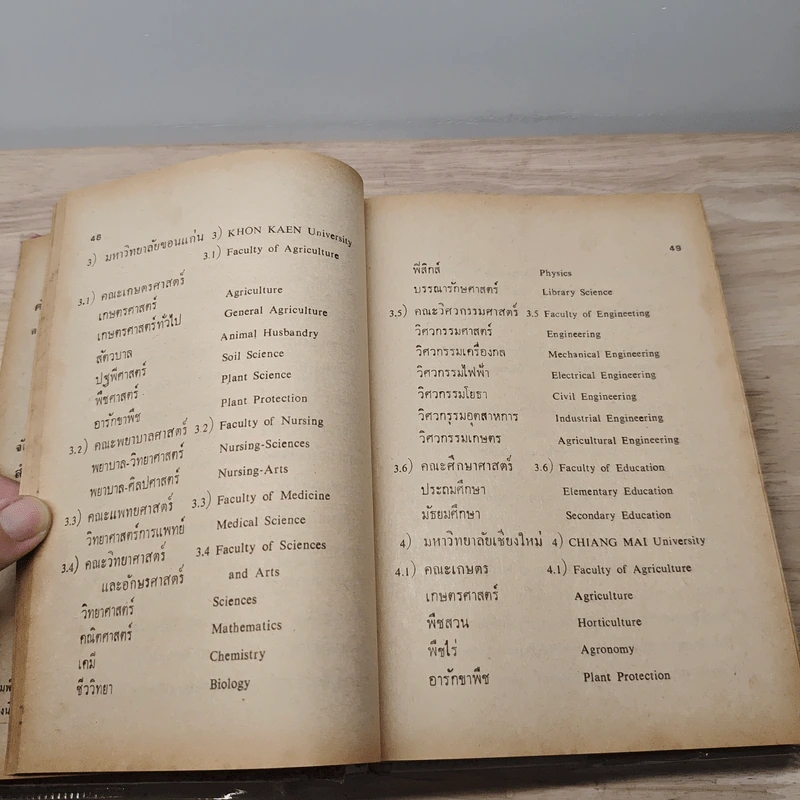 48
3) มหาวิทยาลัยขอนแก่น 3) KHON KAEN University
3.1) Faculty of Agriculture
3.1) คณะเกษตรศาสตร์
เกษตรศาสตร์ Agriculture
เกษตรศาสตร์ทั่วไป General Agriculture
สัตวบาล Animal Husbandry
ปฐพีศาสตร์ Soil Science
พืชศาสตร์ Plant Science
อารักขาพืช Plant Protection
3.2) คณะพยาบาลศาสตร์ 3 2) Faculty of Nursing
พยาบาล-วิทยาศาสตร์ Nursing-Sciences
พยาบาล-ศิลปศาสตร์ Nursing-Arts
3.3) คณะแพทยศาสตร์ 3.3) Faculty of Medicine
วิทยาศาสตร์การแพทย์ Medical Science
3.4) คณะวิทยาศาสตร์ 3.4 Faculty of Sciences
และอักษรศาสตร์ and Arts
วิทยาศาสตร์ Sciences
คณิตศาสตร์ Mathematics
เคมี Chemistry
ชีววิทยา Biology
49
ฟิสิกส์ Physics
บรรณารักษศาสตร์ Library Science
3.5) คณะวิศวกรรมศาสตร์ 3.5 Faculty of Engineeting
วิศวกรรมศาสตร์ Engineering
วิศวกรรมเครื่องกล Mechanical Engineering
วิศวกรรมไฟฟ้า Electrical Engineering
วิศวกรรมโยธา Civil Engineering
วิศวกรรมอุตสาหการ Industrial Engineering
วิศวกรรมเกษตร Agricultural Engineering
3.6) คณะศึกษาศาสตร์ 3.6) Faculty of Education
ประถมศึกษา Elementary Education
มัธยมศึกษา Secondary Education
4) มหาวิทยาลัยเชียงใหม่ 4) CHIANG MAI University
4.1) คณะเกษตร 4.1) Faculty of Agriculture
เกษตรศาสตร์ Agriculture
พืชสวน Horticulture
พืชไร่ Agronomy
อารักขาพืช Plant Protection